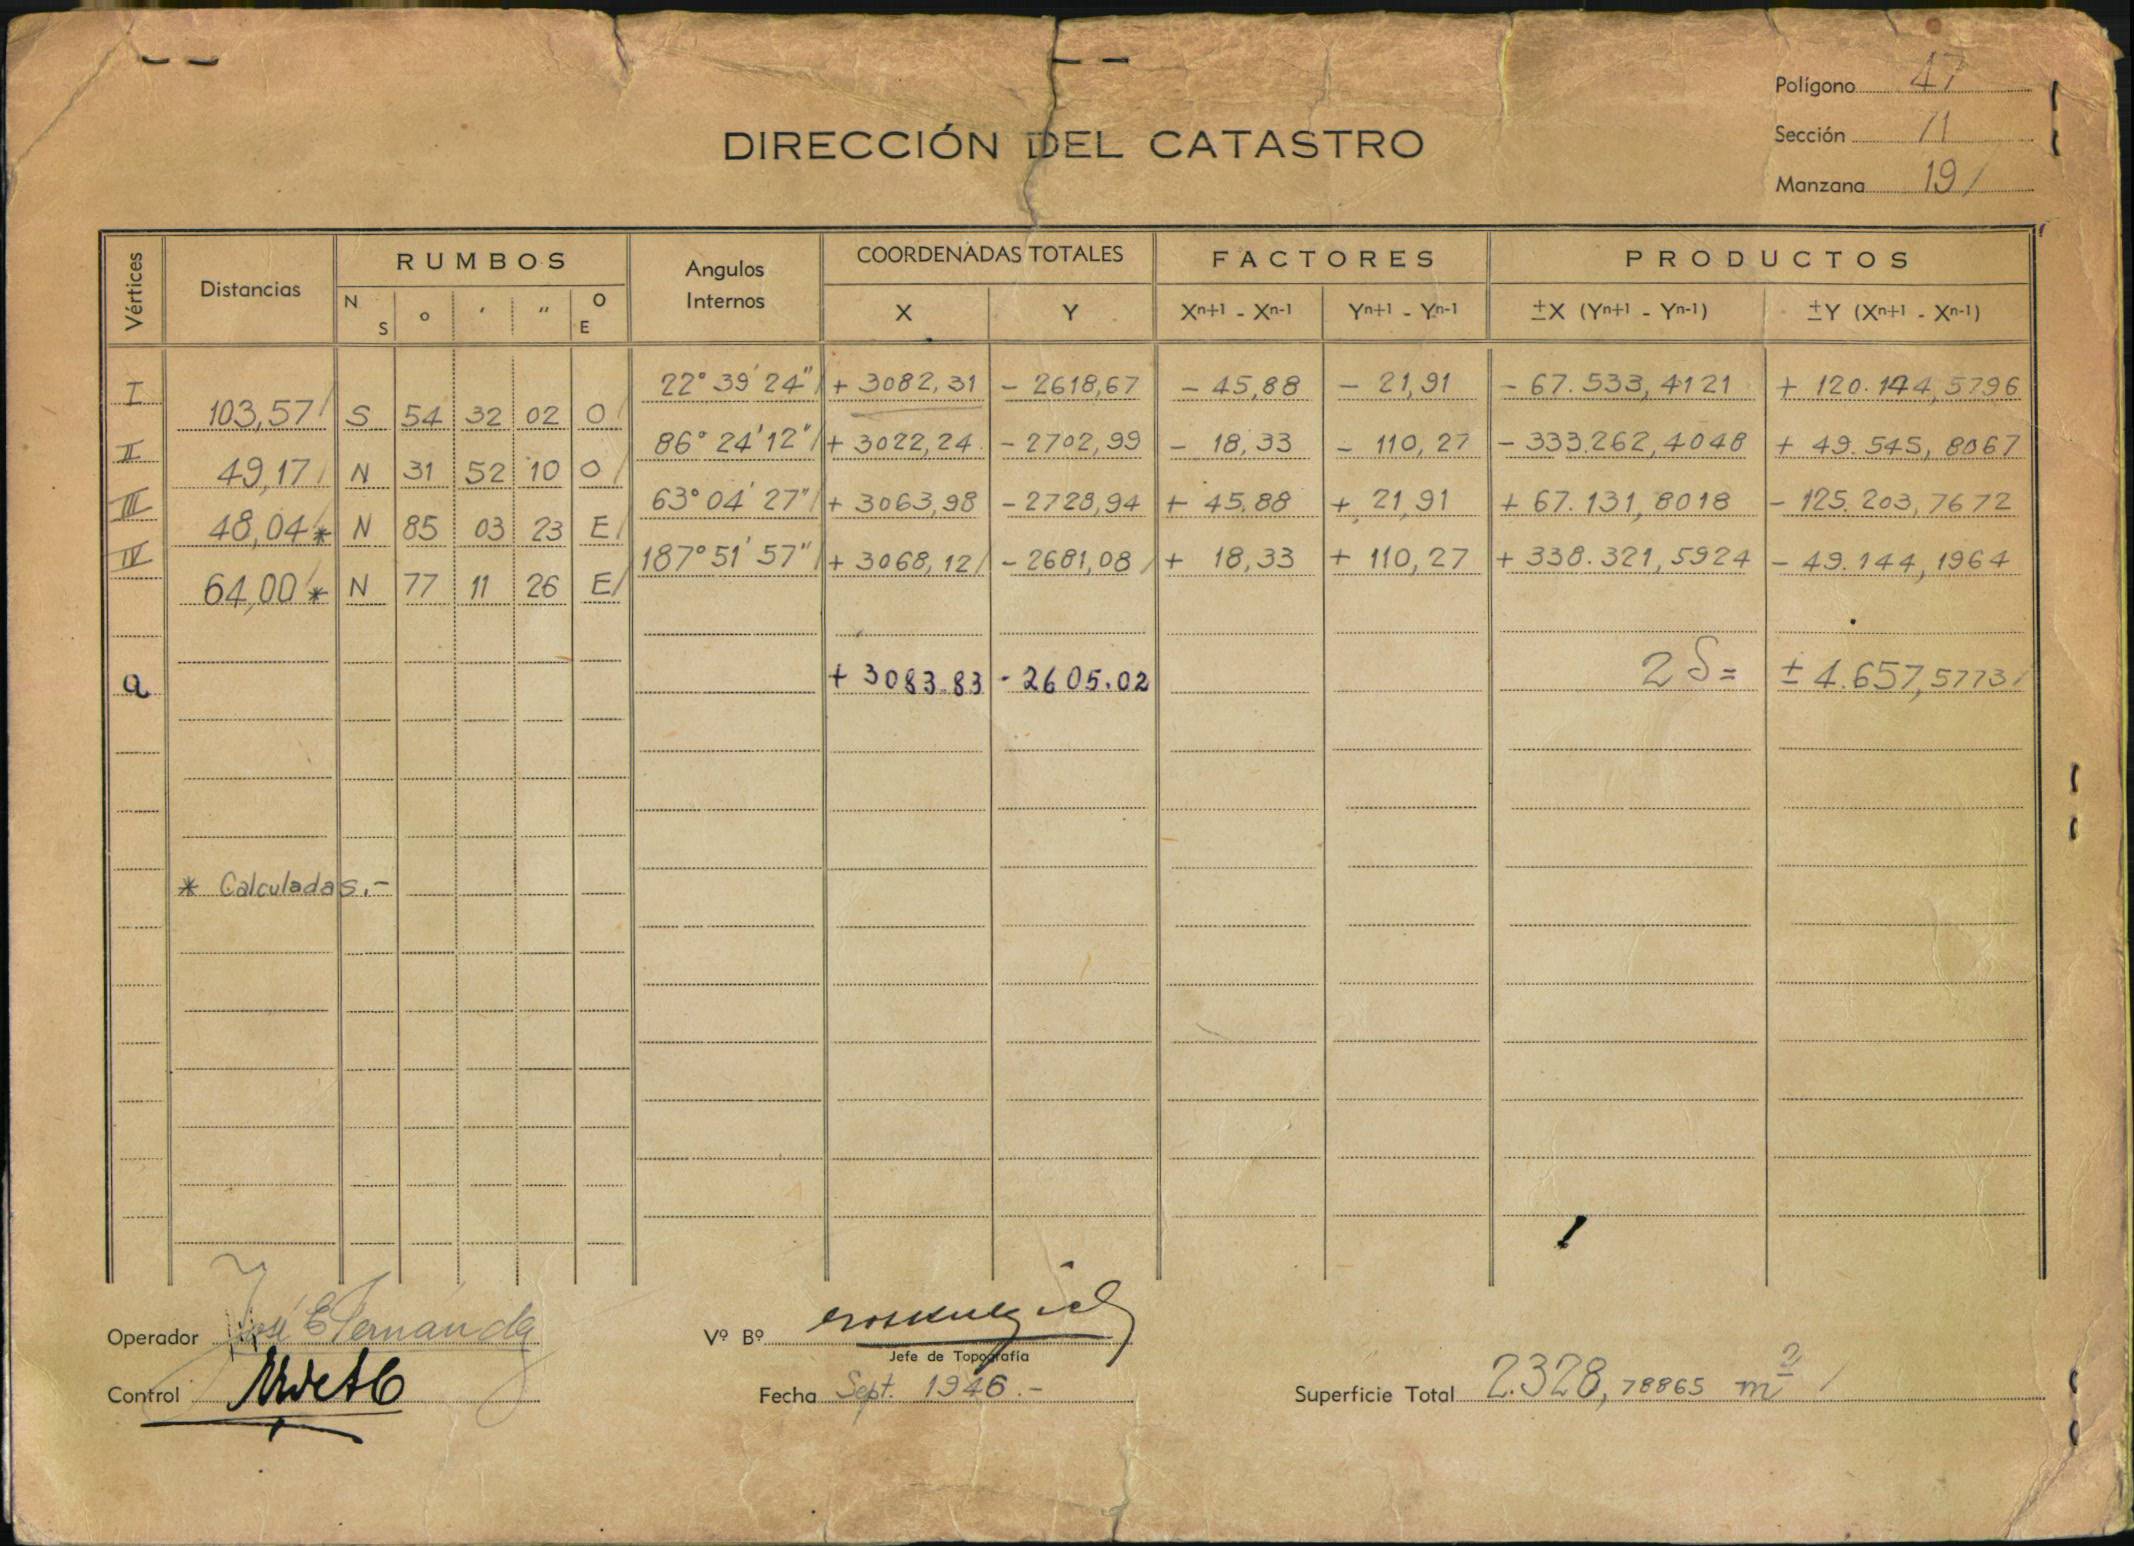 Polígono 47
DIRECCIÓN DEL CATASTRO
Sección 71
Manzana 19
Vértices Distancias RUMBOS Angulos Internos COORDENADAS TOTALES FACTORES PRODUCTOS
N S o ′ ″ O E X Y Xn+1 - Xn-1 Yn+1 - Yn-1 ±X (Yn+1 - Yn-1) ±Y (Xn+1 - Xn-1)
I 22° 39′ 24″ + 3082,31 - 2618,67 - 45,88 - 21,91 - 67.533,4121 + 120.144,5796
103,57 S 54 32 02 O
II 86° 24′ 12″ + 3022,24 - 2702,99 - 18,33 - 110,27 - 333.262,4048 + 49.545,8067
49,17 N 31 52 10 O
III 63° 04′ 27″ + 3063,98 - 2728,94 + 45,88 + 21,91 + 67.131,8018 - 125.203,7672
48,04* N 85 03 23 E
IV 187° 51′ 57″ + 3068,12 - 2681,08 + 18,33 + 110,27 + 338.321,5924 - 49.144,1964
64,00* N 77 11 26 E
a + 3083.83 - 2605.02 2 S = ± 4.657,5773
* Calculadas.-
Operador José E Fernández
Vº Bº
Jefe de Topografía
Control
Fecha Sept. 1946.-
Superficie Total 2.328,78865 m²